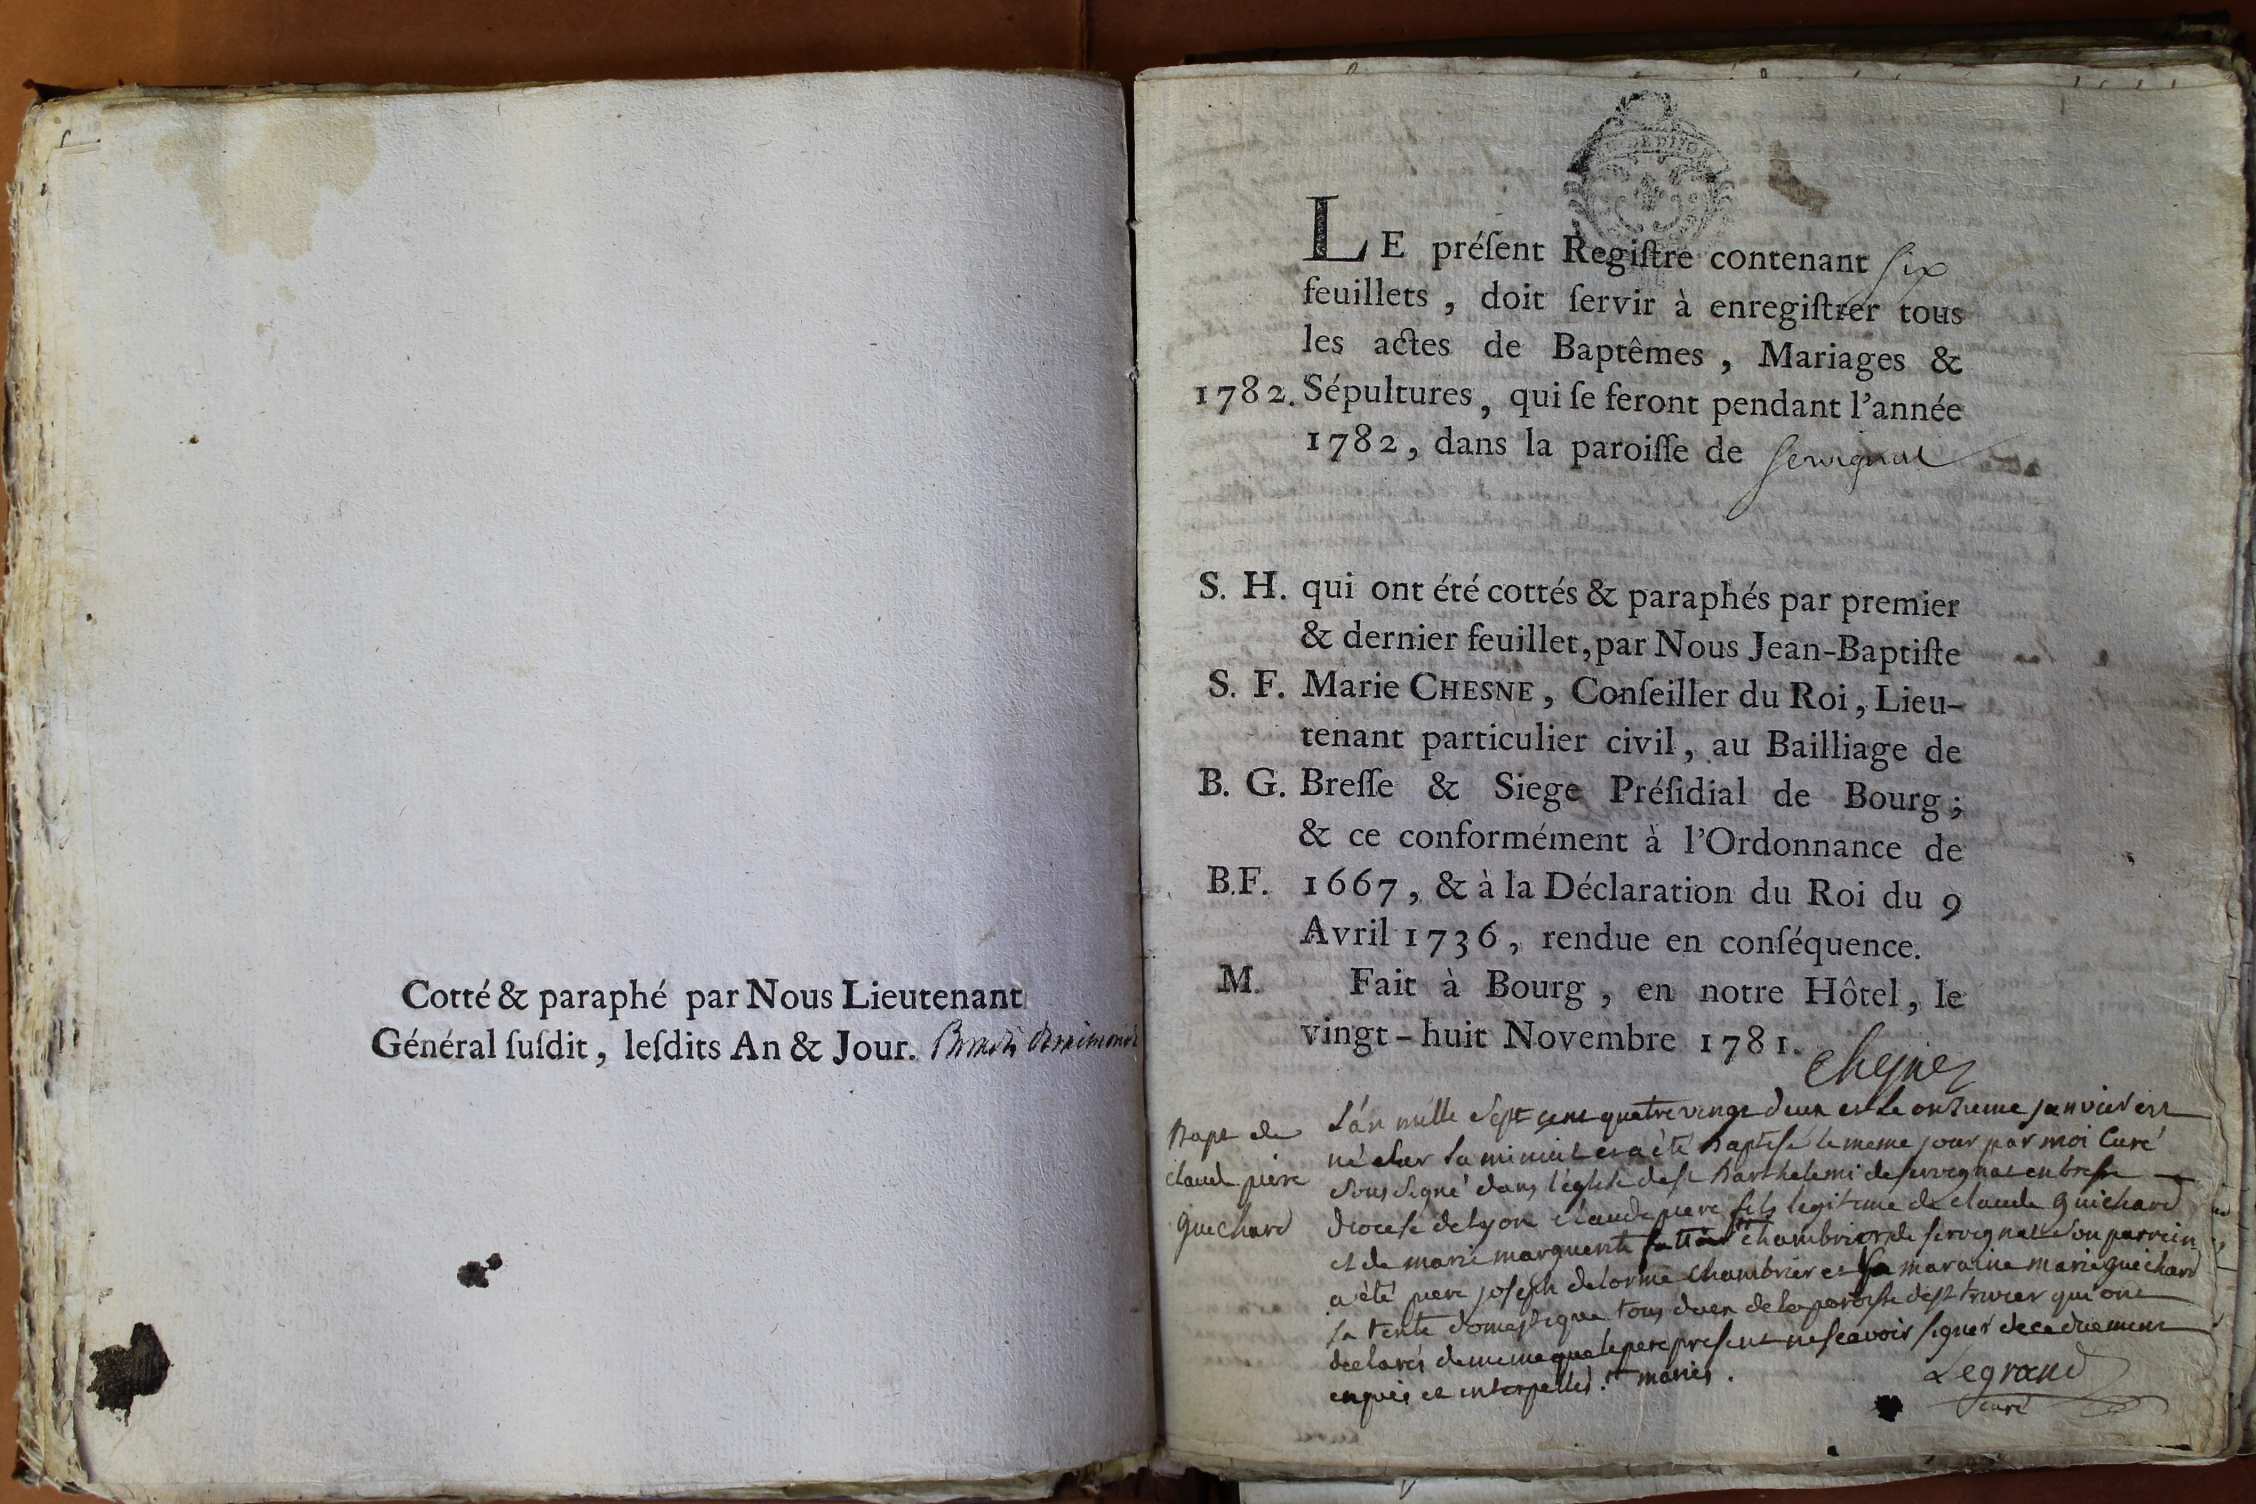 Cotté & paraphé par Nous Lieutenant
Général ſuſdit, leſdits An & Jour.
LE préſent Regiſtre contenant six
feuillets, doit ſervir à enregiſtrer tous
les actes de Baptêmes, Mariages &
1782. Sépultures, qui ſe feront pendant l'année
1782, dans la paroiſſe de Servignat
S. H. qui ont été cottés & paraphés par premier
& dernier feuillet, par Nous Jean-Baptiſte
S. F. Marie CHESNE, Conſeiller du Roi, Lieu-
tenant particulier civil, au Bailliage de
B. G. Breſſe & Siege Préſidial de Bourg;
& ce conformément à l'Ordonnance de
B.F. 1667, & à la Déclaration du Roi du 9
Avril 1736, rendue en conſéquence.
M. Fait à Bourg, en notre Hôtel, le
vingt-huit Novembre 1781.
Chesne
Bapt de
claude pierre
Guichard
L'an mille sept cent quatre vingt deux et le onzieme janvier est
né sur la minuit et a été Baptisé le meme jour par moi Curé
soussigné dans l'église de st Barthelemi de servignat en bresse
diocese de lyon claude pierre fils legitime de claude Guichard
et de marie marguerite chambrier de servignat son parrein
a été pierre joseph delorme chambrier et sa maraine marie guichard
sa tente domestique tous deux de la paroisse de st trivier qui ont
declarés de meme que le pere present ne scavoir signer de ce duement
enquis et interpellés.
Legrand
curé